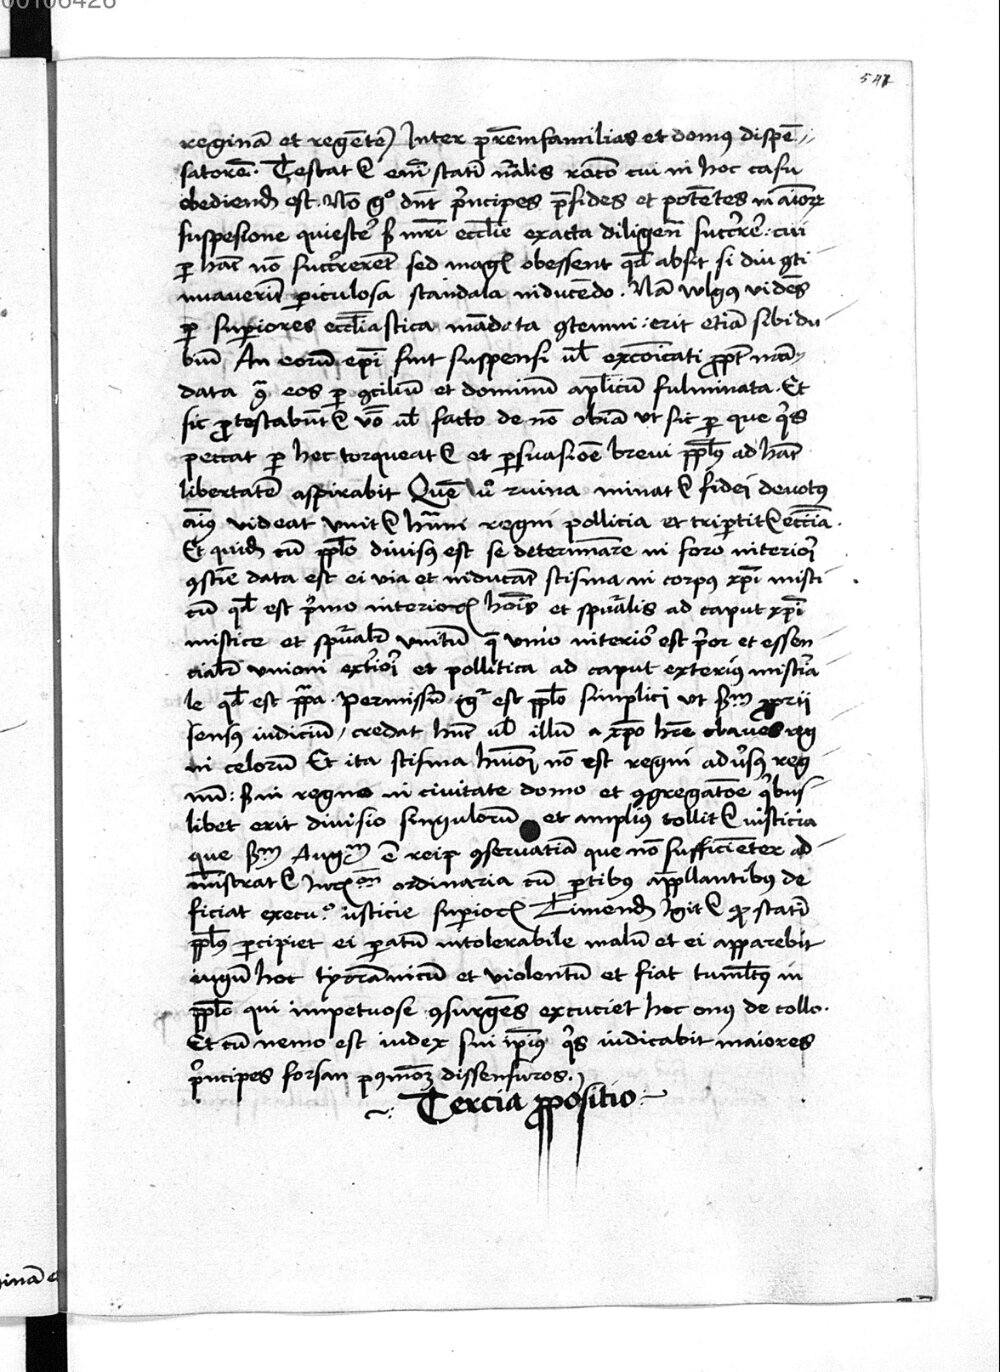 00106426
541
reginā et regētē Inter prēmfamilias et domus dispē
satorē. Testat enī statū nālis rāco cui in hoc casu
obediend est. Nō g° dn̄t p̄ncipes p̄sides et potētes in aiorȝ
suspēsione quiescē s mr̄i eccl̄ie exacta diligen succr̄re. cui
p hāc nō succr̄rerēt sed mag obessent qd absit si diu 9ti
nuaverint piculosa scandala inducēdo. Nā vulg9 vidēs
p supiores eccl̄iastica mādata 9temni erit etiā sibi du
biū An eorū ep̄i sint suspensi ul excoīcati ppt mā
data eos p 9ciliū et dominū ap̄licū fulminata. Et
sic protestabūt vō ul facto de nō obīa ut sic p que q̄s
peccat p hec torqueat et psuasiōe brevi ppl9 ad hāc
libertatē aspirabit Quē ruina minat fidei devotus
ai9 videat unit regni pollicia et tripertit eccīa.
Et quid cū pplo divis9 est se determināre in foro interiori
9sciē data est ei via et inducāt scisma in corp9 xp̄i misti
cū qd est p̄mo interior hoīs et spūalis ad caput xp̄i
mistice et spūalr unitū q̄ unio interior est p̄or et essen
cialr unioni ext̄iori et pollitica ad caput exteri9 mist̄ia
le qd est pp̄a. Permissū igr est pplo simplici ut sm proprii
sens9 iudiciū credat hūc ul illū a xp̄o hr̄e claves reg
ni celorū Et ita scisma nō est regni advs9 reg
nū: s in regno in civitate domo et 9gregatōe q̄bus
libet erit divisio singulorū et ampli9 tollit iusticia
que sm Aug ē reip 9servativa que nō sufficienter ad
ministrat ordinaria cū ptibus appllantibus de
ficiat execu° iusticie superior Timend igit statī
ppl9 pcipiet ei patū intolerabile malū et ei apparebit
iugū hoc tyrānicū et violentū et fiat tumult9 in
pplo qui impetuose 9surgēs excuciet hoc on9 de collo.
Et cū nemo est iudex sui ip̄i9 q̄s iudicabit maiores
p̄ncipes forsan dissensuros.
Tercia propositio
inā e